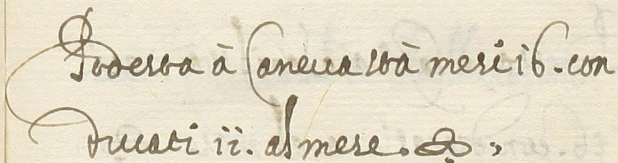 Podesta à Caneua stà mesi 16. con
ducati ii. al mese.